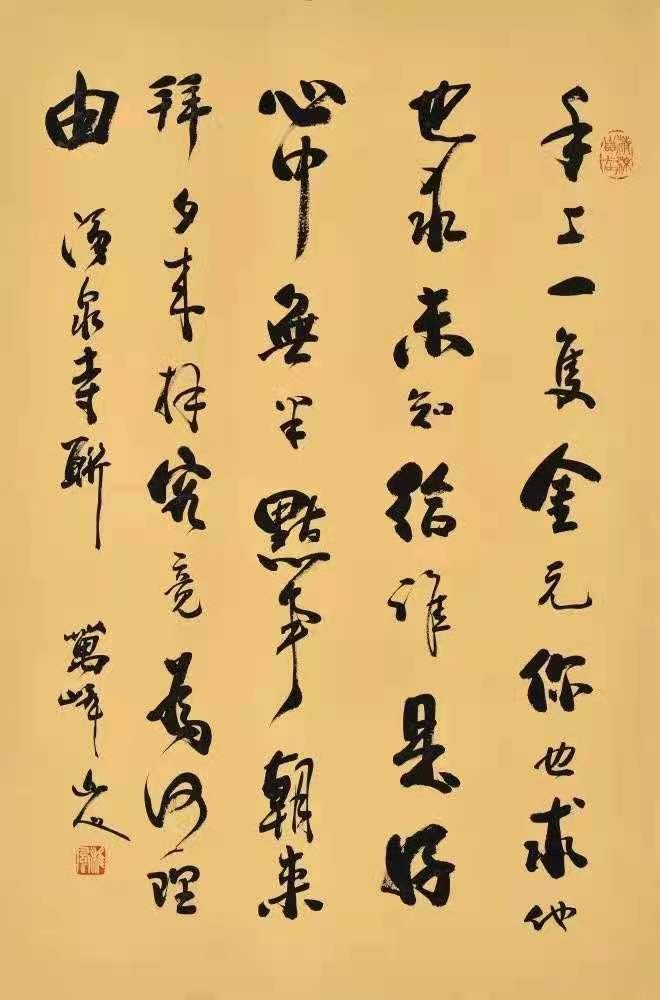 手上一隻金元你也求他
也求未知給誰是好
心中無半點事朝来
拜夕来拜究竟為何理
由 泉寺聯 萬峰山人